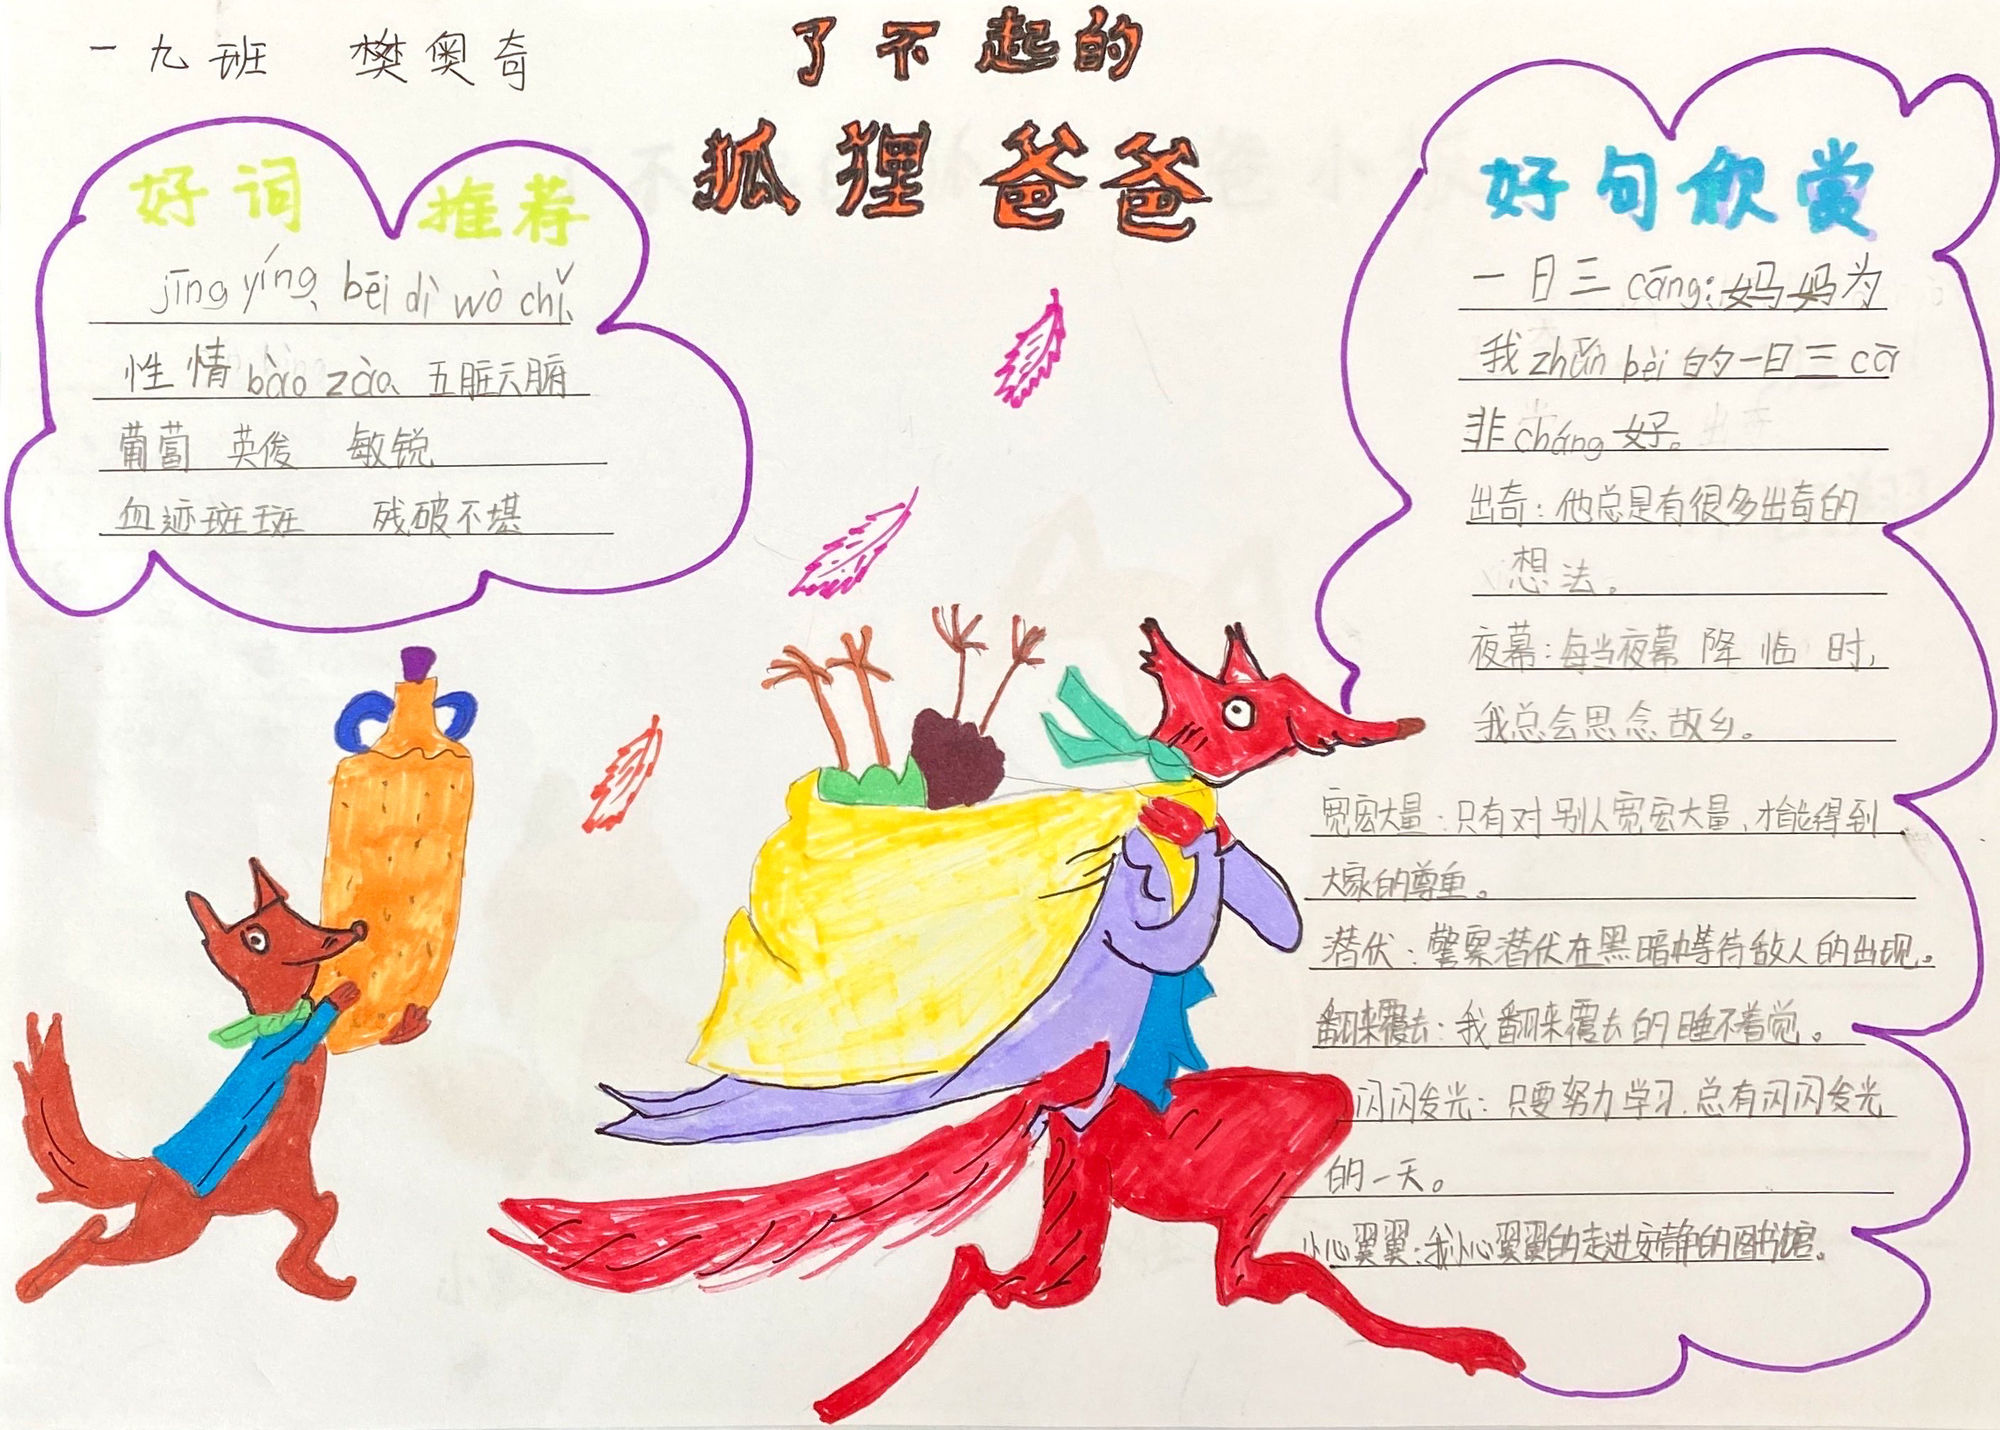 一九班 樊奥奇
了不起的
狐狸爸爸
好词 推荐
jīng yíng、bēi dì wò chǐ、
性情bào zào、五脏六腑
葡萄 英俊 敏锐
血迹斑斑 残破不堪
好句欣赏
一日三cāng：妈妈为
我zhǔn bèi的一日三cā
非cháng好。
出奇：他总是有很多出奇的
想法。
夜幕：每当夜幕降临时，
我总会思念故乡。
宽宏大量：只有对别人宽宏大量、才能得到
大家的尊重。
潜伏：警察潜伏在黑暗中等待敌人的出现。
翻来覆去：我翻来覆去的睡不着觉。
闪闪发光：只要努力学习、总有闪闪发光
的一天。
小心翼翼：我小心翼翼的走进安静的图书馆。